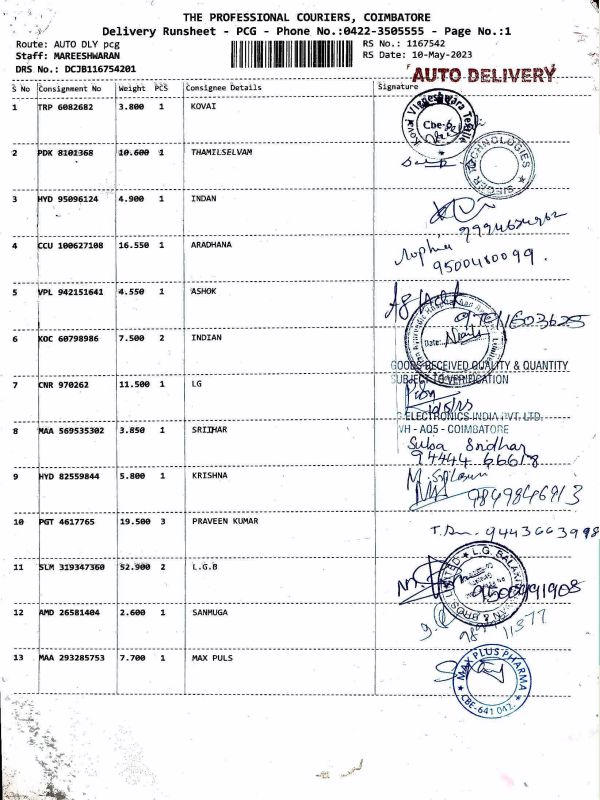 THE PROFESSIONAL COURIERS, COIMBATORE
Delivery Runsheet - PCG - Phone No.:0422-3505555 - Page No.:1
Route: AUTO DLY pcg
Staff: MAREESHWARAN
DRS No.: DCJB116754201
RS No.: 1167542
RS Date: 10-May-2023
AUTO DELIVERY
S No Consignment No Weight PCS Consignee Details Signature
1 TRP 6082682 3.800 1 KOVAI
Kovai Vigneshwara
Cbe-6
2 PDK 8101368 10.600 1 THAMILSELVAM
SIEGER TECHNOLOGIES
3 HYD 95096124 4.900 1 INDAN
4 CCU 100627108 16.550 1 ARADHANA
Sophia
9500480099.
5 VPL 942151641 4.550 1 ASHOK
6 KOC 60798986 7.500 2 INDIAN
Date:
GOODS RECEIVED QUALITY & QUANTITY
SUBJECT TO VERIFICATION
7 CNR 970262 11.500 1 LG
ELECTRONICS INDIA PVT. LTD.
VH - AQ5 - COIMBATORE
8 MAA 569535302 3.850 1 SRIDHAR
Suba Sridhar
94444 66618
9 HYD 82559844 5.800 1 KRISHNA
9849846913
10 PGT 4617765 19.500 3 PRAVEEN KUMAR
9443663998
11 SLM 319347360 52.900 2 L.G.B
L.G. BALAKRISHNAN & BROS. LIMITED
12 AMD 26581404 2.600 1 SANMUGA
13 MAA 293285753 7.700 1 MAX PULS
MAX PLUS PHARMA
CBE-641 042.